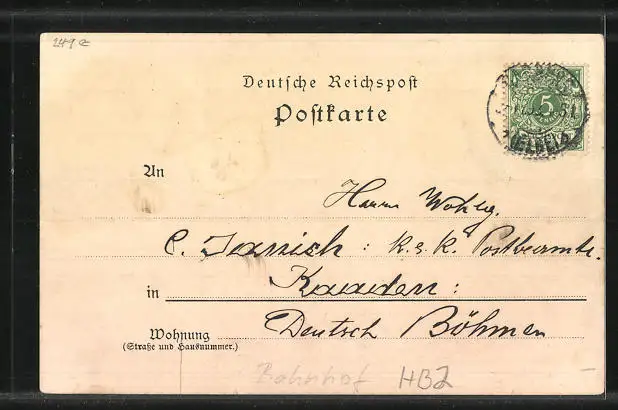 249 e
Deutsche Reichspost
Postkarte
5
(ELBE)
An
Herrn Wohlg.
C. Jannich : K. & K. Postbeamte.
in Kaaden :
Deutsch Böhmen
Wohnung
(Straße und Hausnummer.)
Bahnhof HBZ